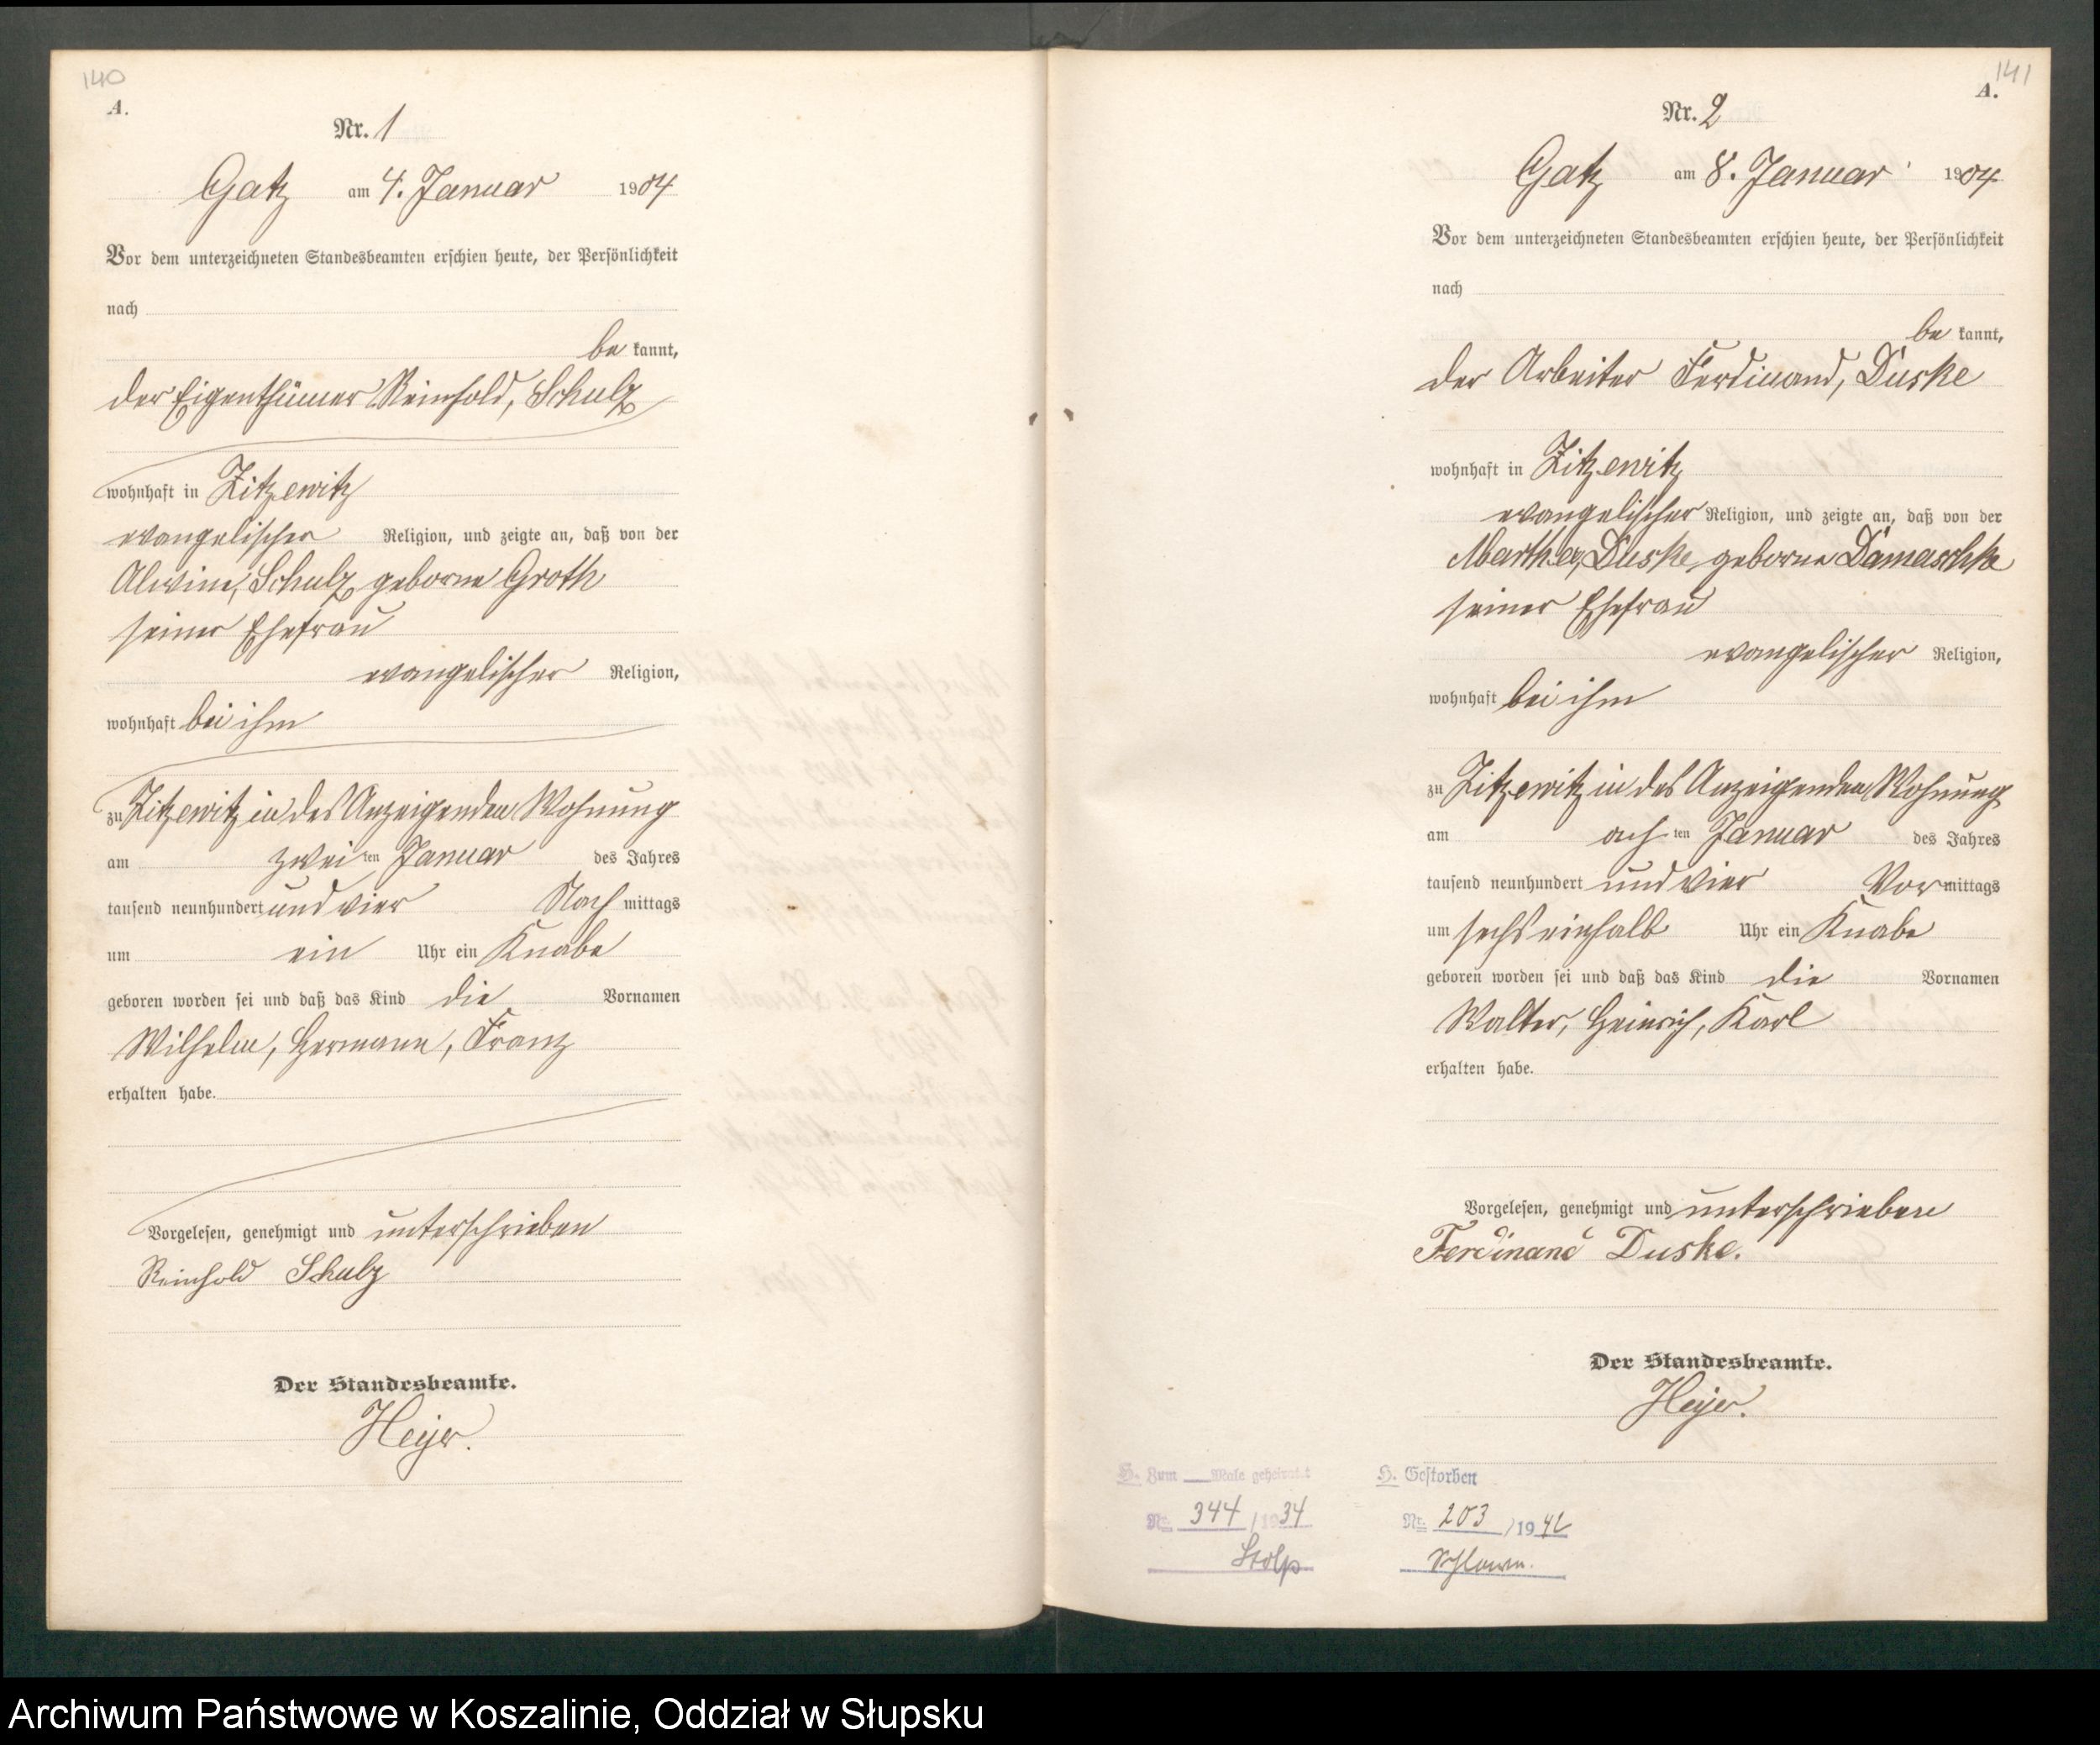 140
A.
Nr. 1
Gatz am 4. Januar 1904
Vor dem unterzeichneten Standesbeamten erschien heute, der Persönlichkeit
nach
be kannt,
der Eigenthümer Reinhold, Schulz
wohnhaft in Zitzewitz
evangelischer Religion, und zeigte an, daß von der
Alwine, Schulz geborne Groth
seiner Ehefrau
evangelischer Religion,
wohnhaft bei ihm
zu Zitzewitz in des Anzeigenden Wohnung
am zwei ten Januar des Jahres
tausend neunhundert und vier Nach mittags
um ein Uhr ein Knabe
geboren worden sei und daß das Kind die Vornamen
Wilhelm, Hermann, Franz
erhalten habe.
Vorgelesen, genehmigt und unterschrieben
Reinhold Schulz
Der Standesbeamte.
Heyer.
141
A.
Nr. 2
Gatz am 8. Januar 1904
Vor dem unterzeichneten Standesbeamten erschien heute, der Persönlichkeit
nach
be kannt,
der Arbeiter Ferdinand, Duske
wohnhaft in Zitzewitz
evangelischer Religion, und zeigte an, daß von der
Martha, Duske geborne Damaschke
seiner Ehefrau
evangelischer Religion,
wohnhaft bei ihm
zu Zitzewitz in des Anzeigenden Wohnung
am ach ten Januar des Jahres
tausend neunhundert und vier Vor mittags
um sechs einhalb Uhr ein Knabe
geboren worden sei und daß das Kind die Vornamen
Walter, Heinrich, Karl
erhalten habe.
Vorgelesen, genehmigt und unterschrieben
Ferdinand Duske.
Der Standesbeamte.
Heyer.
H. Zum Male geheiratet
Nr. 344 / 1934
Stolp
H. Gestorben
Nr. 203 / 1942
Schlawe.
Archiwum Państwowe w Koszalinie, Oddział w Słupsku